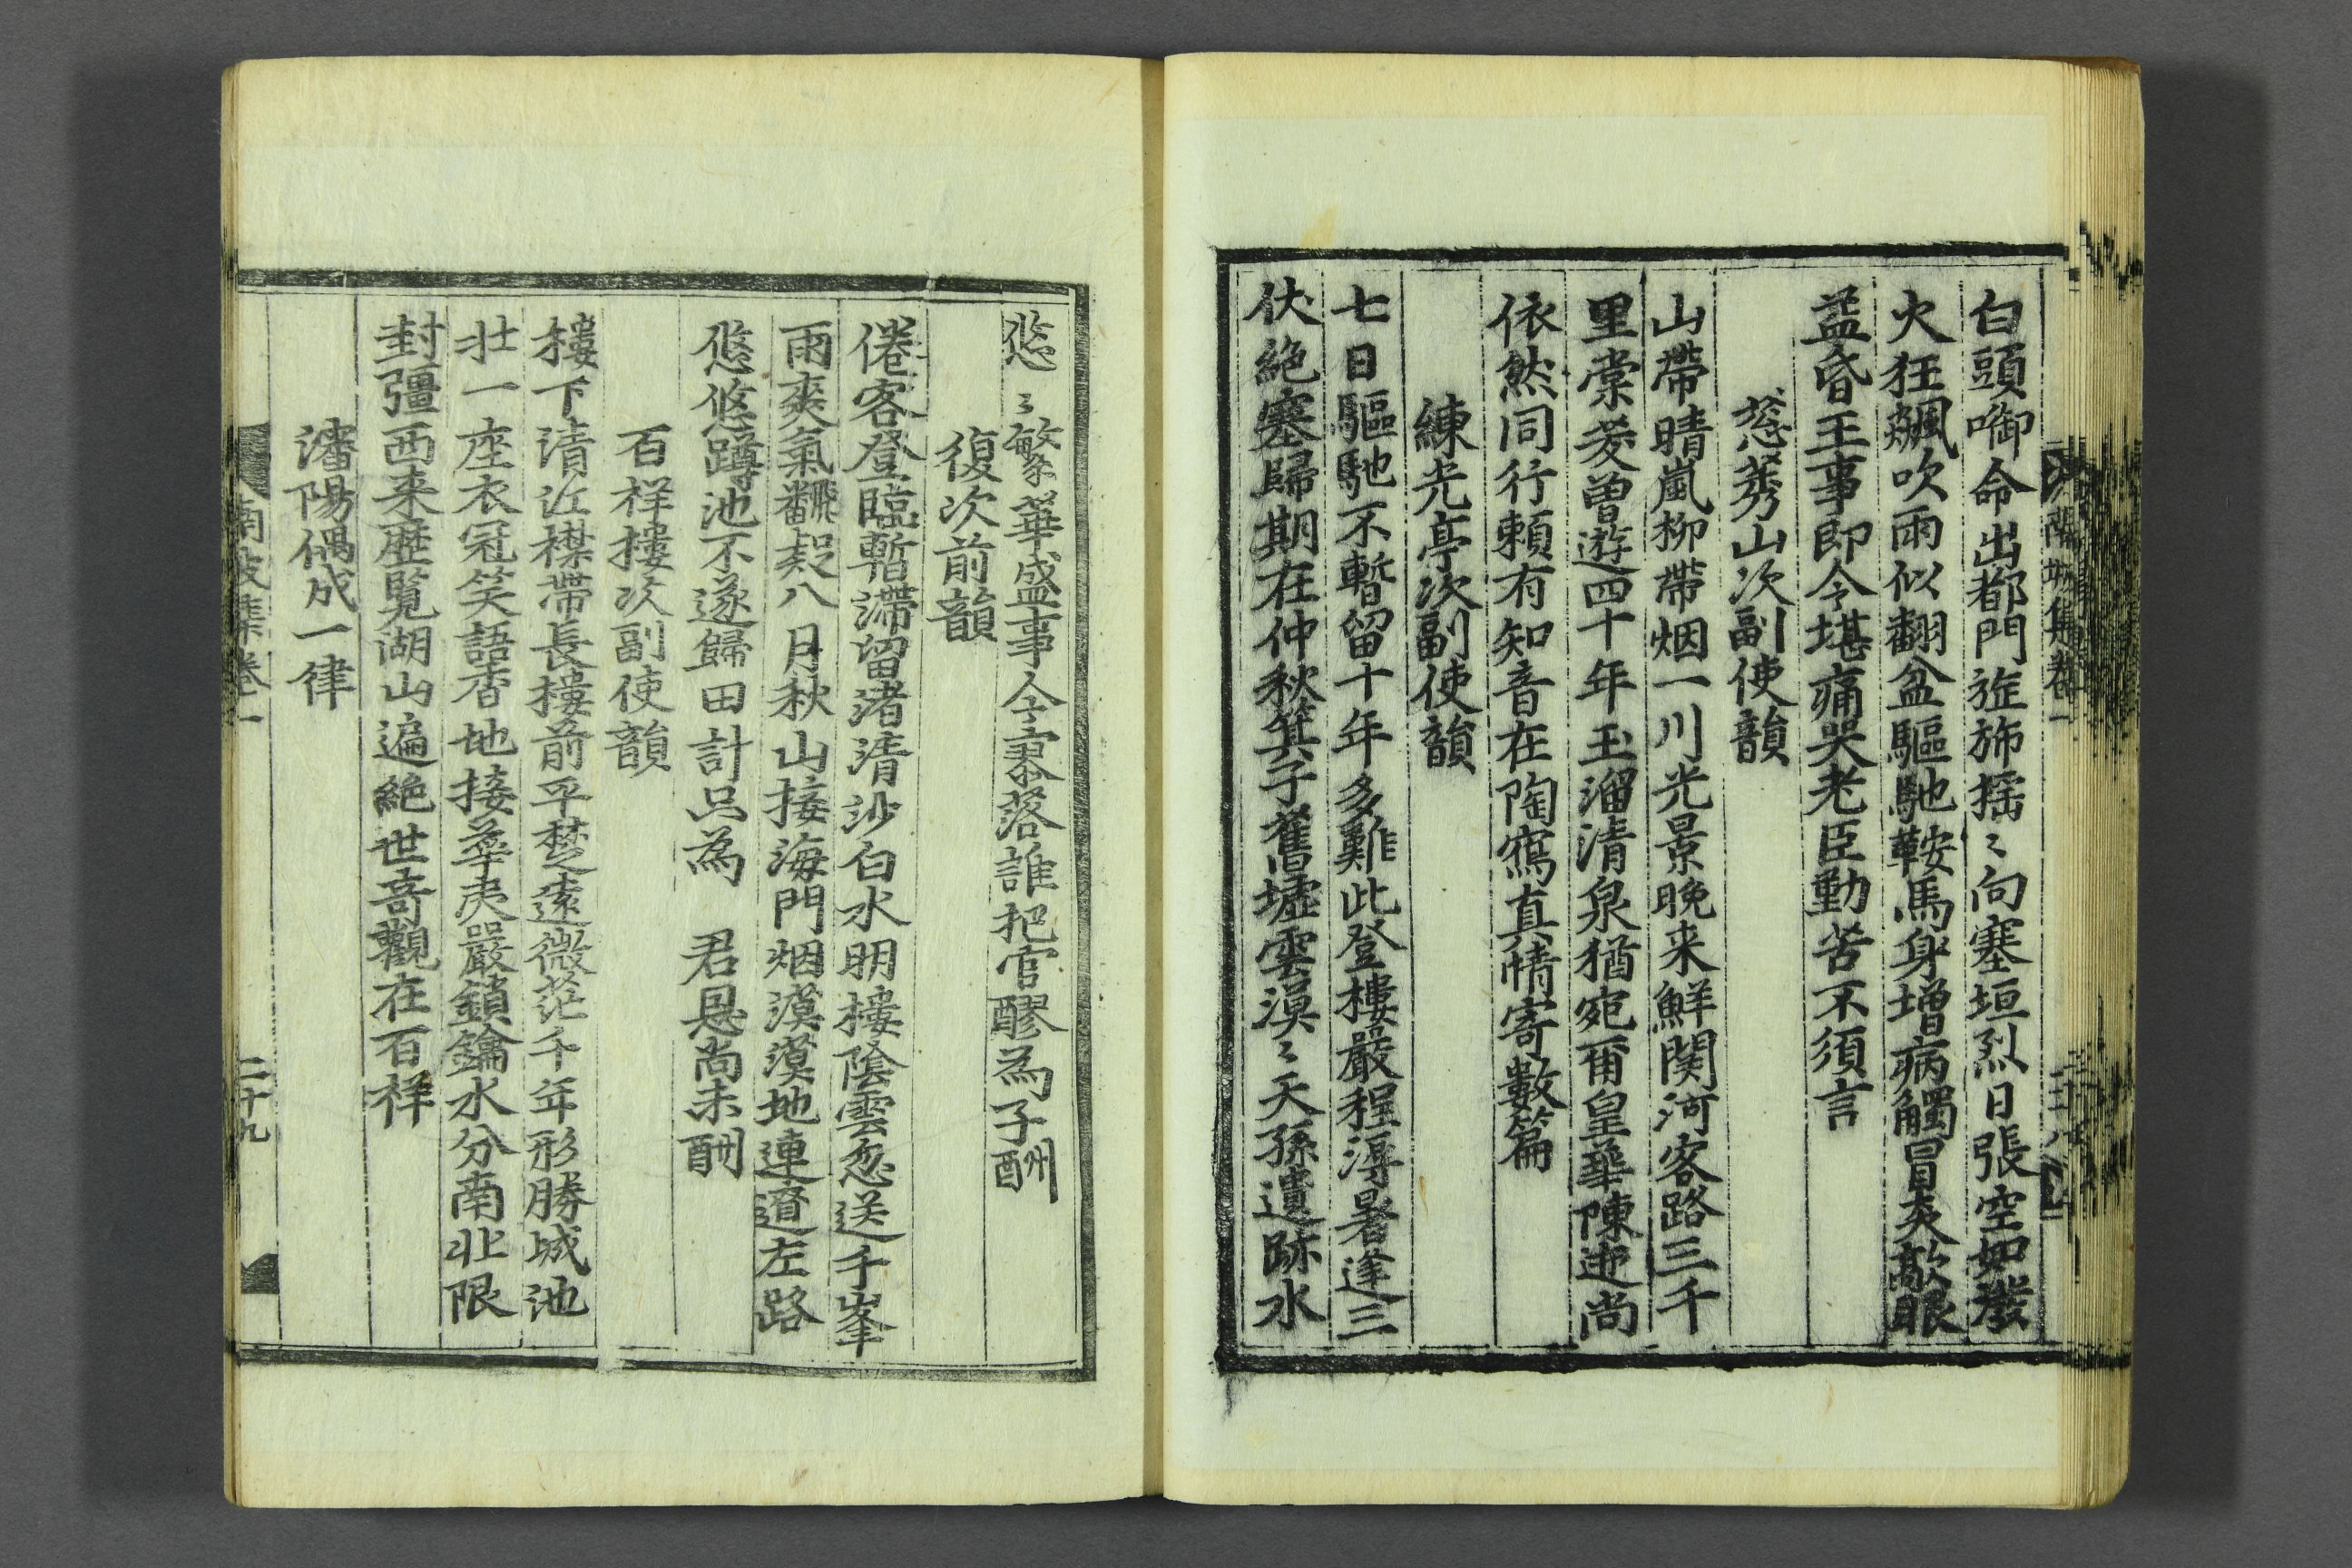 白頭啣命出都門旌旆搖〻向塞垣烈日張空如潑
火狂飆吹雨似翻盆驅馳鞍馬身增病觸冒炎歊眼
益昏王事即今堪痛哭老臣勤苦不須言
葱秀山次副使韻
山帶晴嵐柳帶烟一川光景晚来鮮関河客路三千
里棠茇曽遊四十年玉溜清泉猶宛爾皇華陳迹尚
依然同行頼有知音在陶寫真情寄數篇
練光亭次副使韻
七日驅馳不暫留十年多難此登樓嚴程溽暑逢三
伏絶塞歸期在仲秋箕子舊墟雲漠〻天孫遺跡水
悠〻繁華盛事今寥落誰把官醪為子酬
復次前韻
倦客登臨暫滯留渚清沙白水明樓陰雲忽送千峯
雨爽氣飜疑八月秋山接海門烟漠漠地連遼左路
悠悠蹲池不遂歸田計只為 君恩尚未酬
百祥樓次副使韻
樓下清江襟帶長樓前平楚遠微茫千年形勝城池
壮一座衣冠笑語香地接華夷嚴鎖鑰水分南北限
封彊西来歴覧湖山遍絶世竒觀在百祥
瀋陽偶成一律
南坡集卷一
二十九